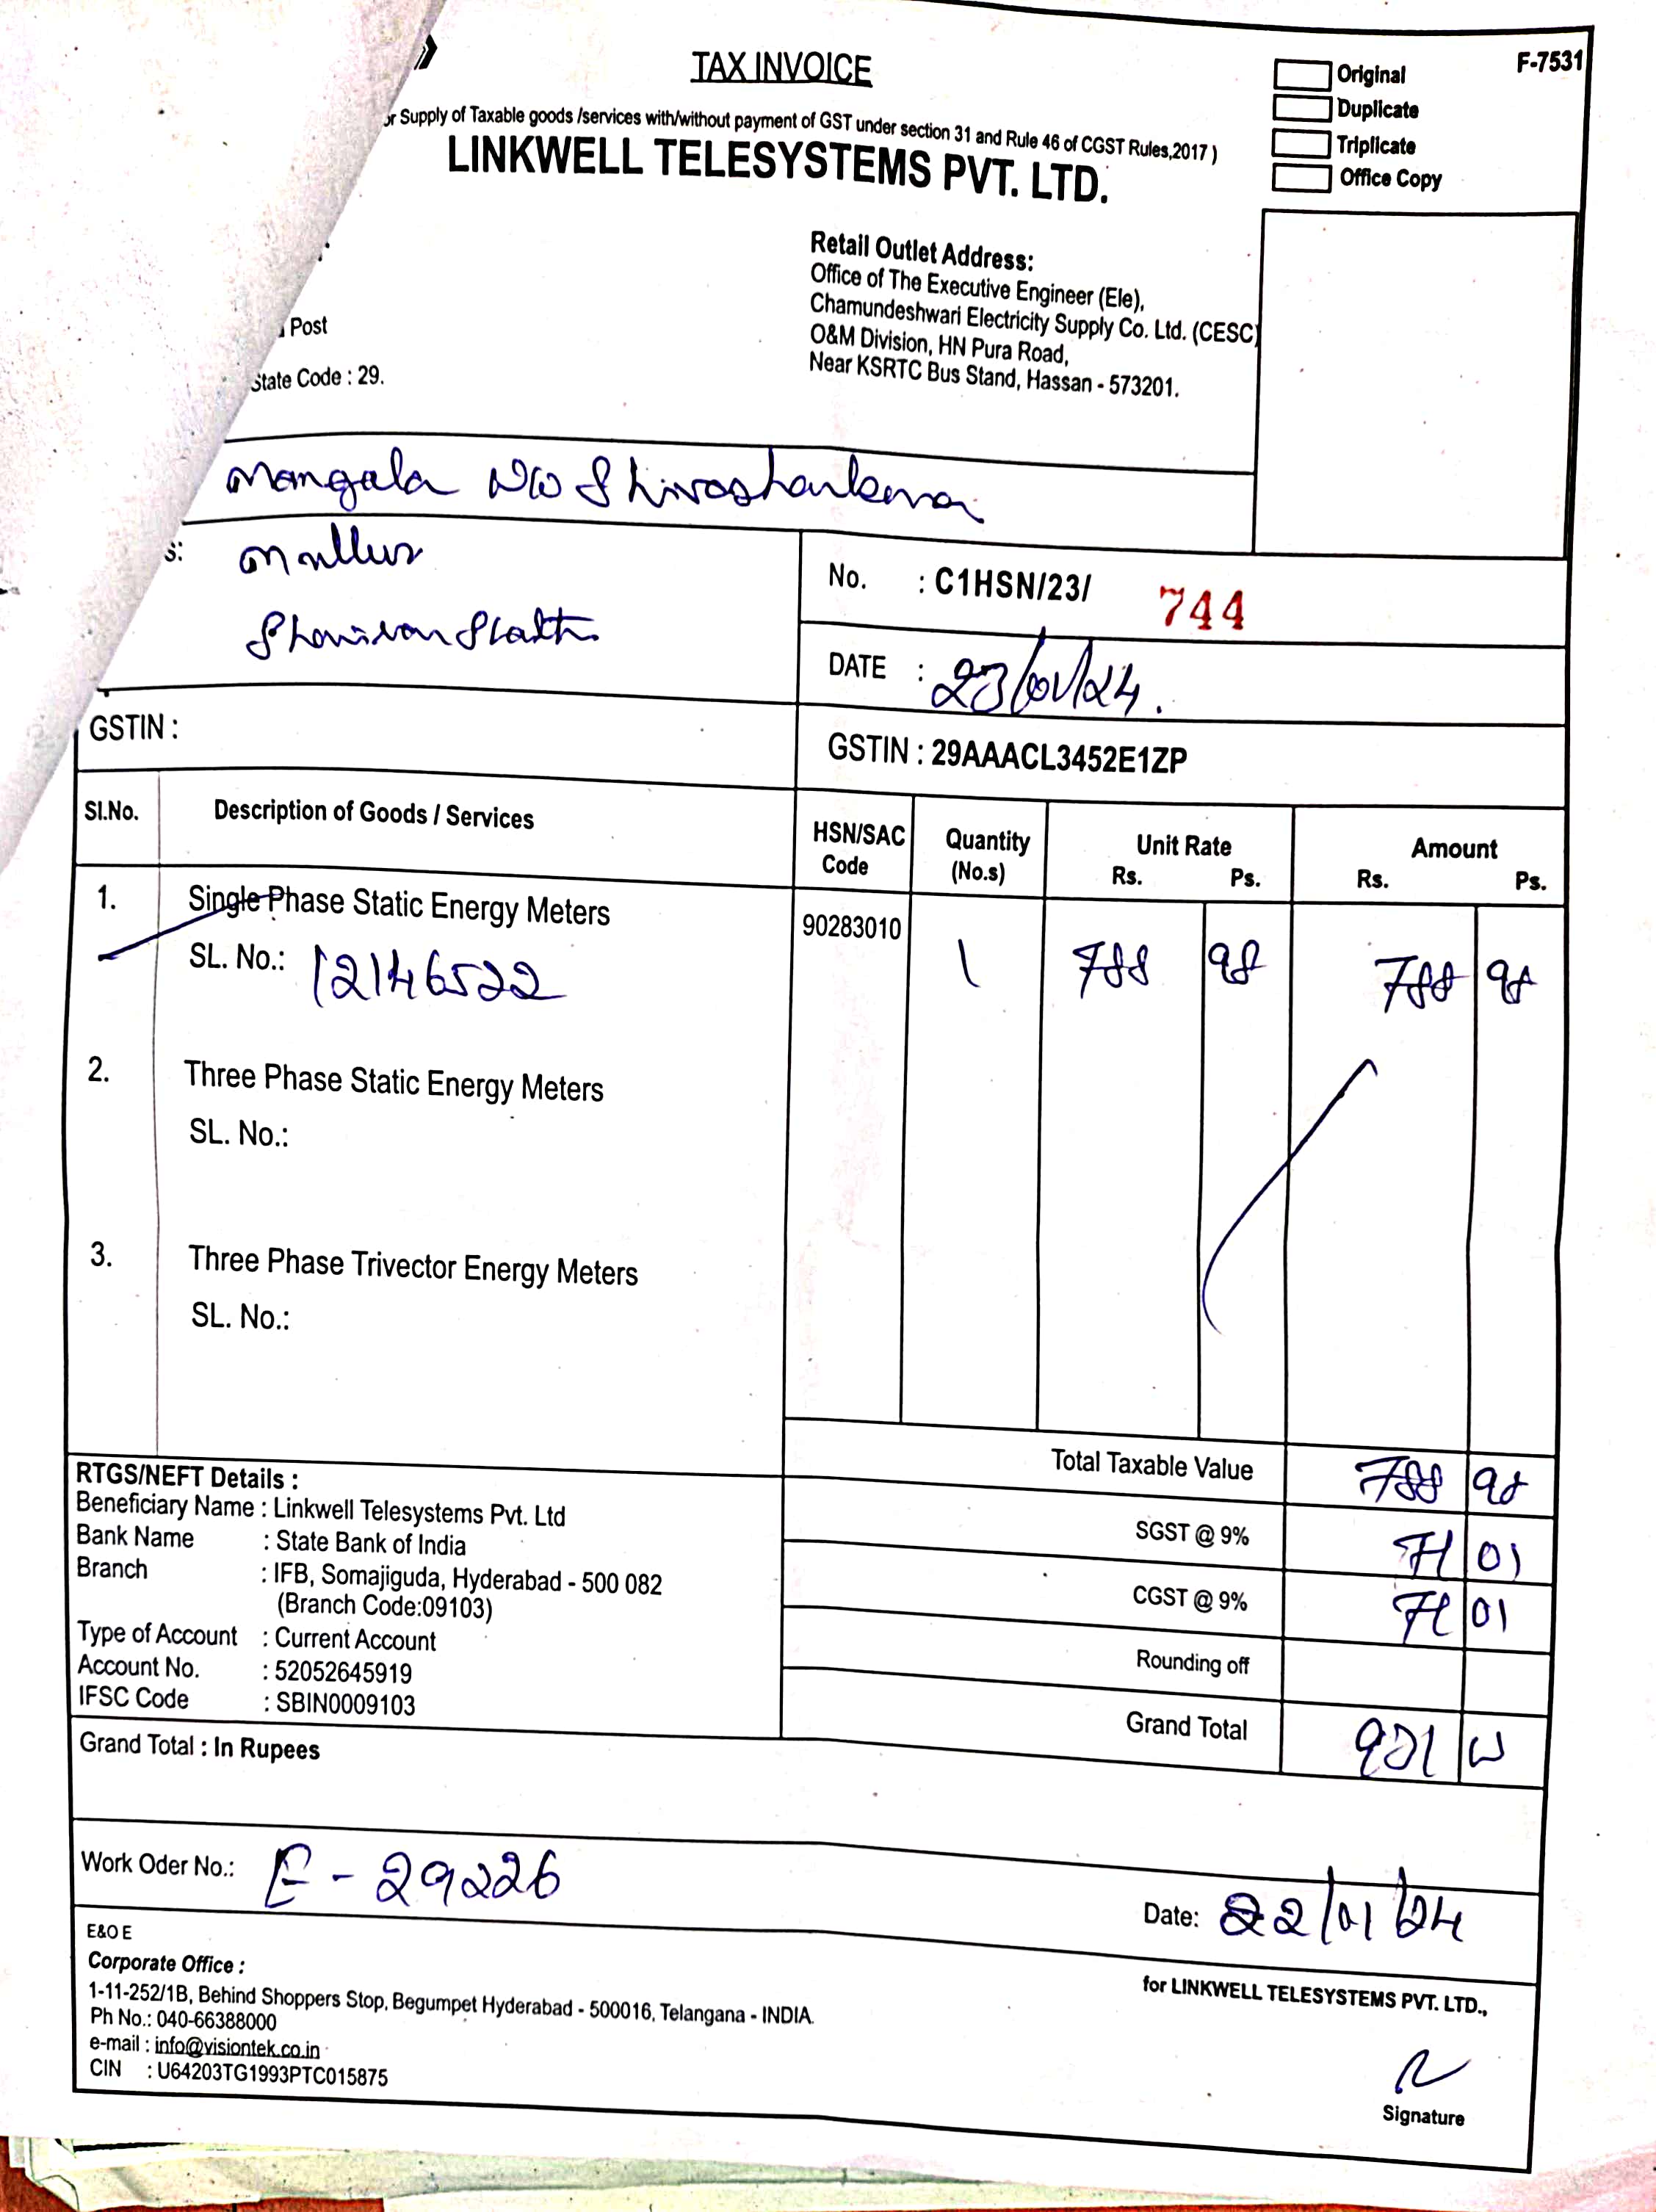 TAX INVOICE
F-7531
Original
Duplicate
Triplicate
Office Copy
Supply of Taxable goods /services with/without payment of GST under section 31 and Rule 46 of CGST Rules,2017 )
LINKWELL TELESYSTEMS PVT. LTD.
Retail Outlet Address:
Office of The Executive Engineer (Ele),
Chamundeshwari Electricity Supply Co. Ltd. (CESC)
O&M Division, HN Pura Road,
Near KSRTC Bus Stand, Hassan - 573201.
Post
State Code : 29.
Mangala W/o Shivashankara
s:
No. : C1HSN/23/ 744
DATE : 23/01/24.
GSTIN :
GSTIN : 29AAACL3452E1ZP
Sl.No. Description of Goods / Services HSN/SAC Code Quantity (No.s) Unit Rate Rs. Ps. Amount Rs. Ps.
1. Single Phase Static Energy Meters 90283010 1 788 98 788 98
SL. No.: 12146522
2. Three Phase Static Energy Meters
SL. No.:
3. Three Phase Trivector Energy Meters
SL. No.:
Total Taxable Value 788 98
SGST @ 9% 71 01
CGST @ 9% 71 01
Rounding off
Grand Total 931 00
RTGS/NEFT Details :
Beneficiary Name : Linkwell Telesystems Pvt. Ltd
Bank Name : State Bank of India
Branch : IFB, Somajiguda, Hyderabad - 500 082
(Branch Code:09103)
Type of Account : Current Account
Account No. : 52052645919
IFSC Code : SBIN0009103
Grand Total : In Rupees
Work Oder No.: E - 29226
Date: 22/01/24
E&O E
Corporate Office :
1-11-252/1B, Behind Shoppers Stop, Begumpet Hyderabad - 500016, Telangana - INDIA.
Ph No.: 040-66388000
e-mail : info@visiontek.co.in
CIN : U64203TG1993PTC015875
for LINKWELL TELESYSTEMS PVT. LTD.,
Signature